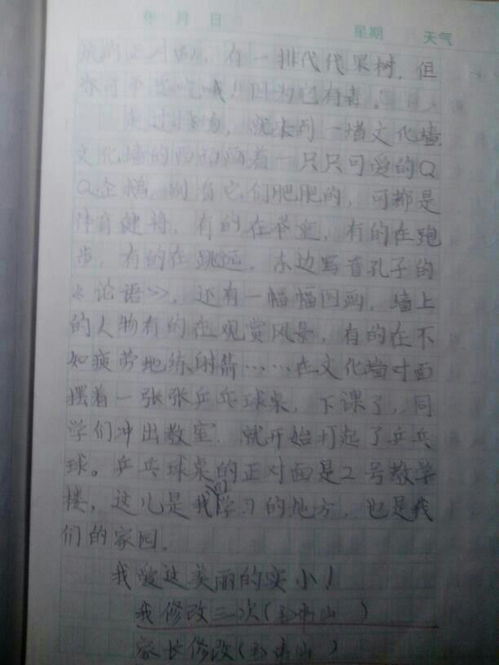 年 月 日 星期 天气
对面，有一排代代果树，但
你可不能吃哦！因为它有毒。
走过 就来到一堵文化墙
文化墙的西边画着一只只可爱的Q
Q企鹅，别看它们肥肥的，可都是
体育健将，有的在 ，有的在跑
步，有的在跳远。东边写着孔子的
《论语》，还有一幅幅图画，墙上
的人物有的在观赏风景，有的在不
知疲劳地练射箭……在文化墙对面
摆着一张张乒乓球桌，下课了，同
学们冲出教室，就开始打起了乒乓
球。乒乓球桌的正对面是2号教学
楼，这儿是我们学习的地方，也是我
们的家园。
我爱这美丽的实小！
我修改三次（ 山）
家长修改（ 山）